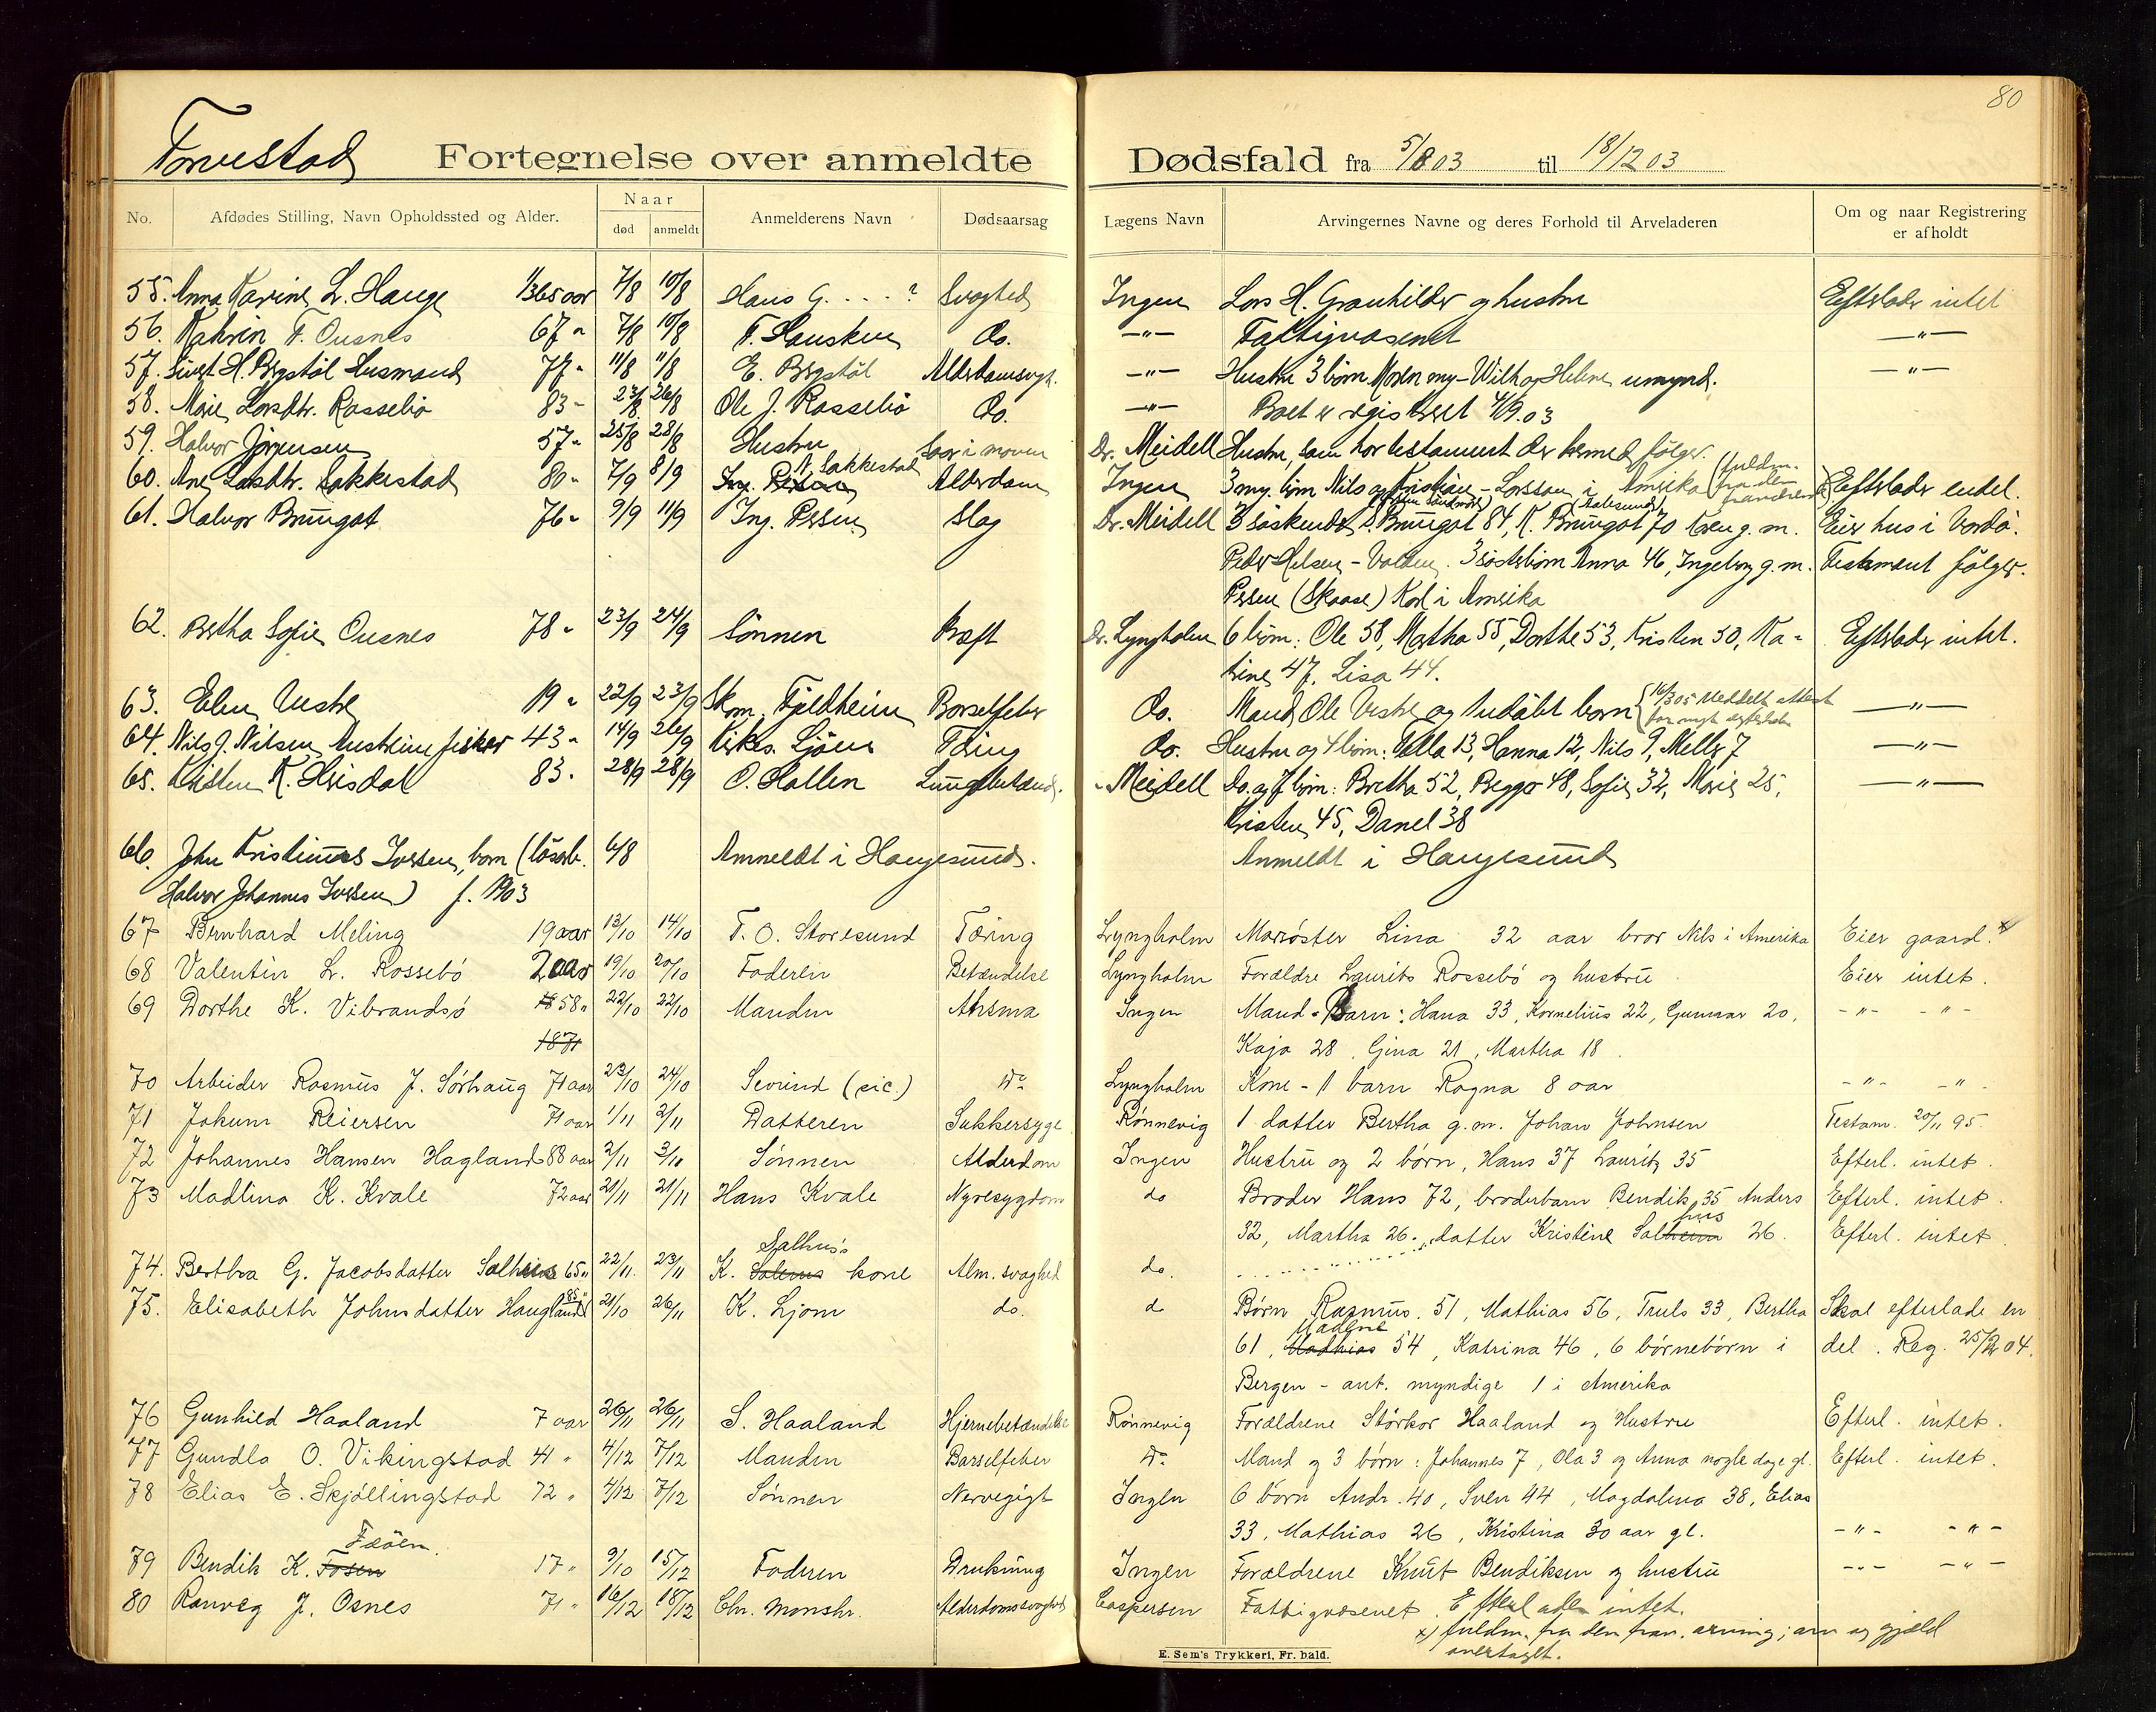 80
Torvestad Fortegnelse over anmeldte Dødsfald fra 5/8 03 til 18/12 03
No. Afdødes Stilling, Navn Opholdssted og Alder. Naar død anmeldt Anmelderens Navn Dødsaarsag Lægens Navn Arvingernes Navne og deres Forhold til Arveladeren Om og naar Registrering er afholdt
55. Anna Karine L. Hauge 1/365 aar 7/8 10/8 Hans G. . . . ? Svaghed Ingen Lars H. Granhilder og hustru Efterlader intet
56. Kahrin T. Ousnes 67 " 7/8 10/8 T. Hausken Do. —"— Fattigvæsenet —"—
57. Sivert H. Bergstöl Husmand 77 " 11/8 11/8 E. Bergstöl Alderdomsvgh. —"— Hustru 3 børn. Maren my - Wilh og Helene umynd. —"—
58. Marie Larsdtr. Rossebö 83 - 23/8 26/8 Ole J. Rossebö Do. —"— Boet er registreret 4/9.03
59. Halvor Jörgensen 57 " 25/8 28/8 Hustru Saar i maven Dr. Meidell Hustru, som har testament der hermed fölger.
60. Ane Larsdtr. Sakkestad 80 " 7/9 8/9 N. Sakkestad Alderdom Ingen 3 my. börn Nils og Kristian - Larssøn i Amerika (fuldm. fra den Efterlader endel.
61. Halvor Brüngot 76 " 9/9 11/9 Ing. Persen Slag Dr. Meidell 3 söskende S. Brüngot 84, K. Brüngot 70 Karen g. m. Eier hus i Vardö.
Peder Helsen - Valden. 3 söstebörn Anna 46, Ingeborg g. m. Testament fölger.
Persen (Skaase) Karl i Amerika
62. Bertha Sofie Ousnes 78 " 23/9 24/9 Sönnen Kræft Dr. Lyngholm 6 börn: Ole 58, Martha 55, Dorthe 53, Kristen 50, Ka- Efterlader intet.
trine 47, Lisa 44.
63. Elen Vestre 19 " 22/9 23/9 Skom. Fjeldheim Barselfeber Do. Mand Ole Vestre og 1 udöbt barn { 16/3 05 Meddelt attest —"—
64. Nils J. Nilsen Austreim fisker 43 " 14/9 26/9 Kirkes. Ljöen Tæring Do. Hustru og 4 börn: Valla 13, Hanna 12, Nils 9, Melly 7 —"—
65. Kristen K. Heisdal 83 " 28/9 28/9 O. Hallen Lüngebetænd. " Meidell Do. og 7 börn: Bertha 52, Begga 48, Sofie 32, Marie 25, —"—
Kristen 45, Danel 38
66. John Kristinus Iversen, barn (lösarb. 6/8 Anmeldt i Haugesund. Anmeldt i Haugesund
Halvor Johannes Iversen) f. 1903
67 Bernhard Meling 19 aar 13/10 14/10 T. O. Storesund Tæring Lyngholm Morsöster Lina 32 aar bror Nils i Amerika Eier gaard. x
68 Valentin L. Rossebö 2 aar 19/10 20/10 Faderen Betændelse Lyngholm Forældre Laurits Rossebö og hustru Eier intet.
69 Dorthe K. Vibrandsö 58 " 22/10 22/10 Manden Ahsma Ingen Mand - Barn: Hana 33, Kornelius 22, Gunnar 20, - " - - " -
1871 Kaja 28, Gina 21, Martha 18.
70 Arbeider Rasmus J. Sørhaug 71 aar 23/10 24/10 Sevrind (sic.) Do Lyngholm Kone - 1 barn Ragna 8 aar - " - - " -
71 Jokum Reiersen 71 aar 1/11 2/11 Datteren Sukkersyge Rönnevig 1 datter Bertha g. m. Johan Johnsen Testam. 20/11 95.
72 Johannes Hansen Hagland 88 aar 2/11 3/11 Sönnen Alderdom Ingen Hustru og 2 børn, Hans 37 Lauritz 35 Efterl. intet.
73 Madlina K. Kvale 72 aar 21/11 21/11 Hans Kvale Nyresygdom do Broder Hans 72, broderbarn Bendik 35 Anders Efterl. intet.
32, Martha 26. datter Kristine Salhus 26. Efterl. intet.
74. Bertha G. Jacobsdatter Salhus 65 " 22/11 23/11 K. Salhus's kone Alm. svaghed do.
75. Elisabeth Johnsdatter Haugland 85 " 21/10 26/11 K. Ljom do. d Børn Rasmus 51, Mathias 56, Truls 33, Bertha Skal efterlade en
61, Madene 54, Katrina 46, 6 börnebörn i del. Reg. 25/2 04.
Bergen - ant. myndige 1 i Amerika
76 Gunhild Haaland 7 aar 26/11 26/11 S. Haaland Hjernebetændelse Rönnevig Forældrene Störkor Haaland og Hustru Efterl. intet.
77 Gundla O. Vikingstad 41 " 4/12 7/12 Manden Barselfeber Do Mand og 3 børn: Johannes 7, Ola 3 og Anna nogle dage gl. Efterl. intet.
78 Elias E. Skjöllingstad 72 " 4/12 7/12 Sönnen Nervegigt Ingen 6 børn Andr. 40, Sven 44, Magdalena 38, Elias
33, Mathias 26, Kristina 30 aar gl. - " - - " -
79 Bendik K. Fæöen 17 " 9/10 15/12 Faderen Drukning Ingen Forældrene Knut Bendiksen og hustru - " - - " -
80 Ranveg J. Osnes 71 " 16/12 18/12 Chr. Monshr. Alderdomssvaghed Caspersen Fattigvæsenet. Efterlader intet.
x) fuldm. fra den frav. arving; arv og gjæld
overtaget.
E. Sem's Trykkeri, Fr. hald.